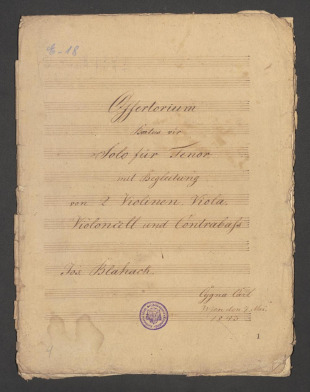 Offertorium
Beatus vir
Solo für Tenor
mit Begleitung
von 2 Violinen Viola
Violoncell und Contrabaß
Jos. Blahack.
Wien den
1